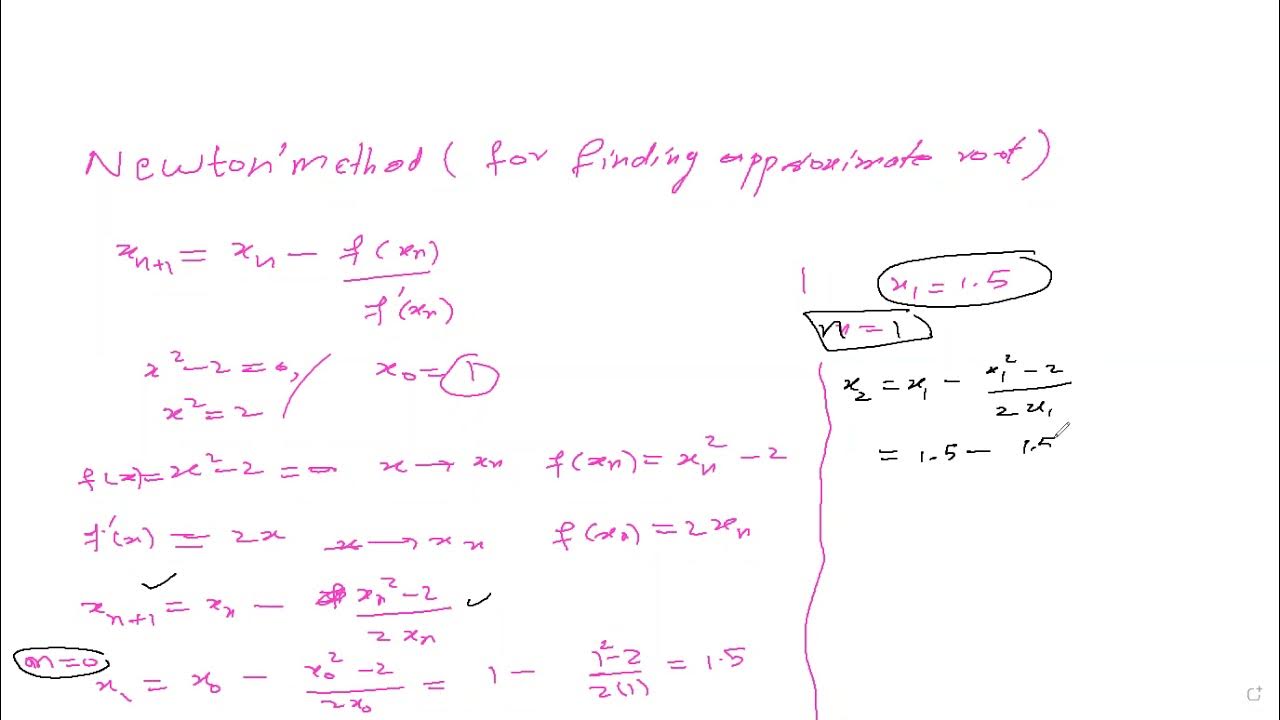 Newton'method ( for finding approximate root)
xₙ₊₁ = xₙ − f(xₙ)/f'(xₙ)
x² − 2 = 0, / x₀ = 1
x² = 2
f(x) = x² − 2 = 0 x → xₙ f(xₙ) = xₙ² − 2
f'(x) = 2x x → xₙ f(xₙ) = 2xₙ
xₙ₊₁ = xₙ − (xₙ² − 2)/(2xₙ)
n = 0
x₁ = x₀ − (x₀² − 2)/(2x₀) = 1 − (1² − 2)/(2(1)) = 1.5
x₁ = 1.5
n = 1
x₂ = x₁ − (x₁² − 2)/(2x₁)
= 1.5 − 1.5